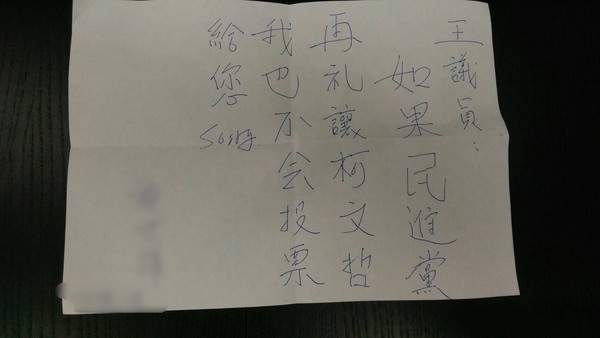 王議員：
如果民進黨
再礼讓柯文哲
我也不会投票
給您
Sorry